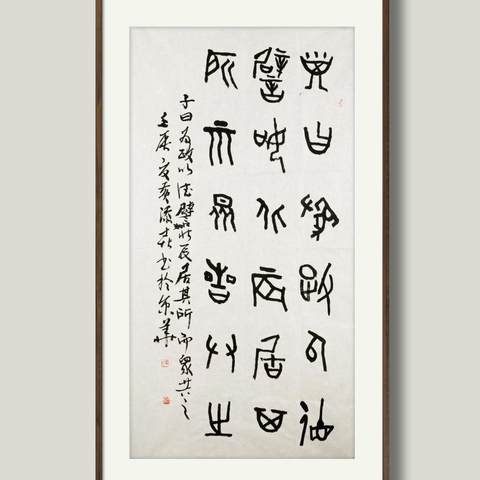 子曰為政以德
譬如北辰居其
所而眾星共之
子曰為政以德譬北辰居其所而眾共之
壬辰書於京華